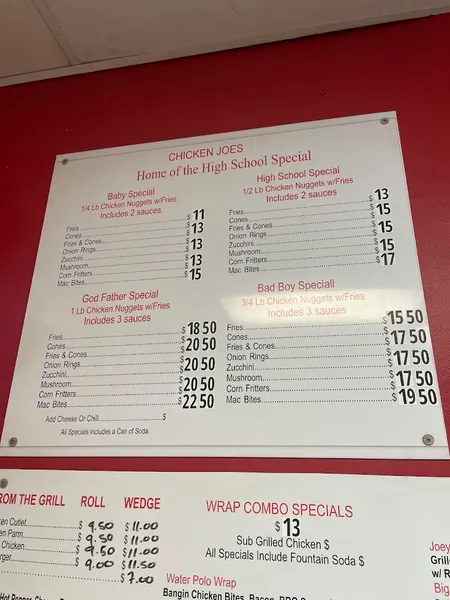 CHICKEN JOES
Home of the High School Special
Baby Special
1/4 Lb Chicken Nuggets w/Fries
Includes 2 sauces
Fries $ 11
Cones $ 13
Fries & Cones
Onion Rings $ 13
Zucchini
Mushroom $ 13
Corn Fritters
Mac Bites $ 15
High School Special
1/2 Lb Chicken Nuggets w/Fries
Includes 2 sauces
Fries $ 13
Cones $ 15
Fries & Cones
Onion Rings $ 15
Zucchini
Mushroom $ 15
Corn Fritters
Mac Bites $ 17
God Father Special
1 Lb Chicken Nuggets w/Fries
Includes 3 sauces
Fries $ 18 50
Cones $ 20 50
Fries & Cones
Onion Rings $ 20 50
Zucchini
Mushroom $ 20 50
Corn Fritters
Mac Bites $ 22 50
Add Cheese Or Chili $
All Specials Includes a Can of Soda
Bad Boy Speciall
3/4 Lb Chicken Nuggets w/Fries
Includes 3 sauces
Fries $ 15 50
Cones $ 17 50
Fries & Cones
Onion Rings $ 17 50
Zucchini
Mushroom $ 17 50
Corn Fritters
Mac Bites $ 19 50
ROM THE GRILL ROLL WEDGE
en Cutlet $ 9.50 $ 11.00
en Parm $ 9.50 $ 11.00
Chicken $ 9.50 $ 11.00
rger $ 9.00 $ 11.50
$ 7.00
WRAP COMBO SPECIALS
$ 13
Sub Grilled Chicken $
All Specials Include Fountain Soda $
Water Polo Wrap
Bangin Chicken Bites, Bacon, BBQ
Joey
Grille
w/ R
Big